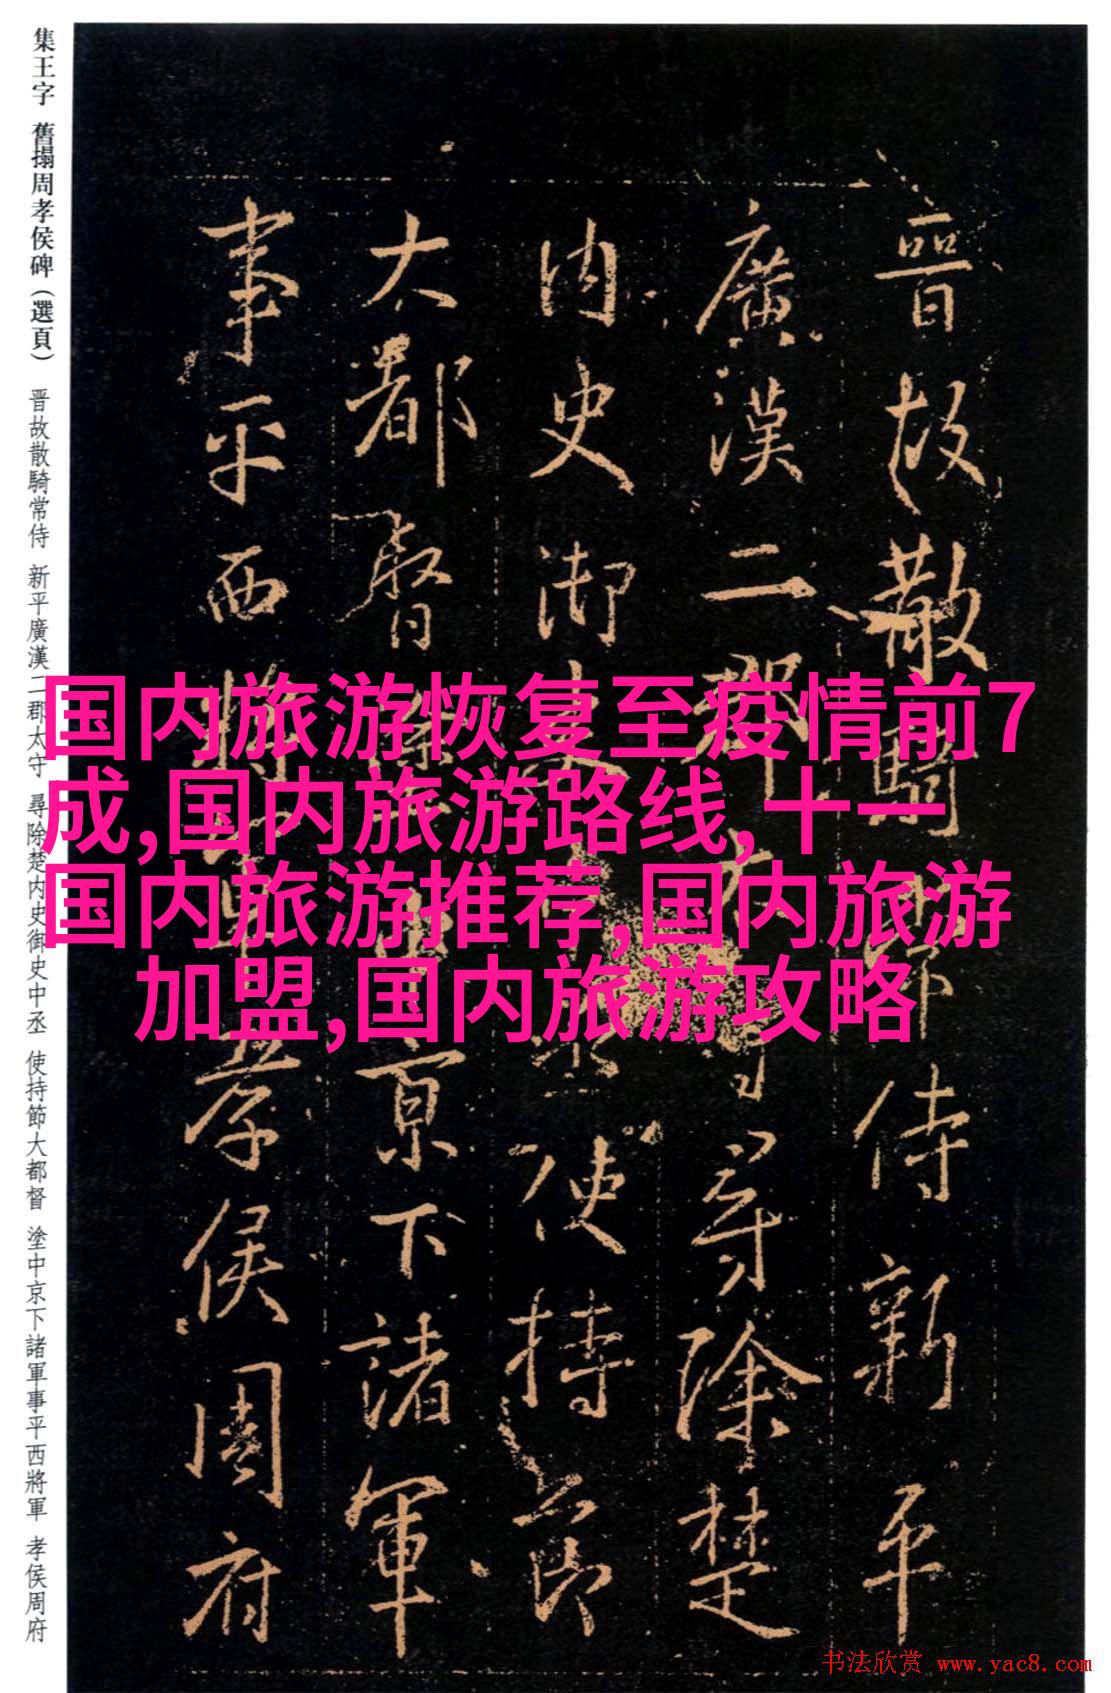 集王字 舊搨周孝侯碑（選頁） 晋故散騎常侍 新平廣漢二郡太守 尋除楚内史御史中丞 使持節大都督 塗中京下諸軍事平西將軍 孝侯周府
晉故散騎常侍新平
廣漢二郡太守尋除楚
内史御史中丞使持節
大都督塗中京下諸軍
事平西將軍孝侯周府
国内旅游恢复至疫情前7
成,国内旅游路线,十一
国内旅游推荐,国内旅游
加盟,国内旅游攻略
书法欣赏 www.yac8.com